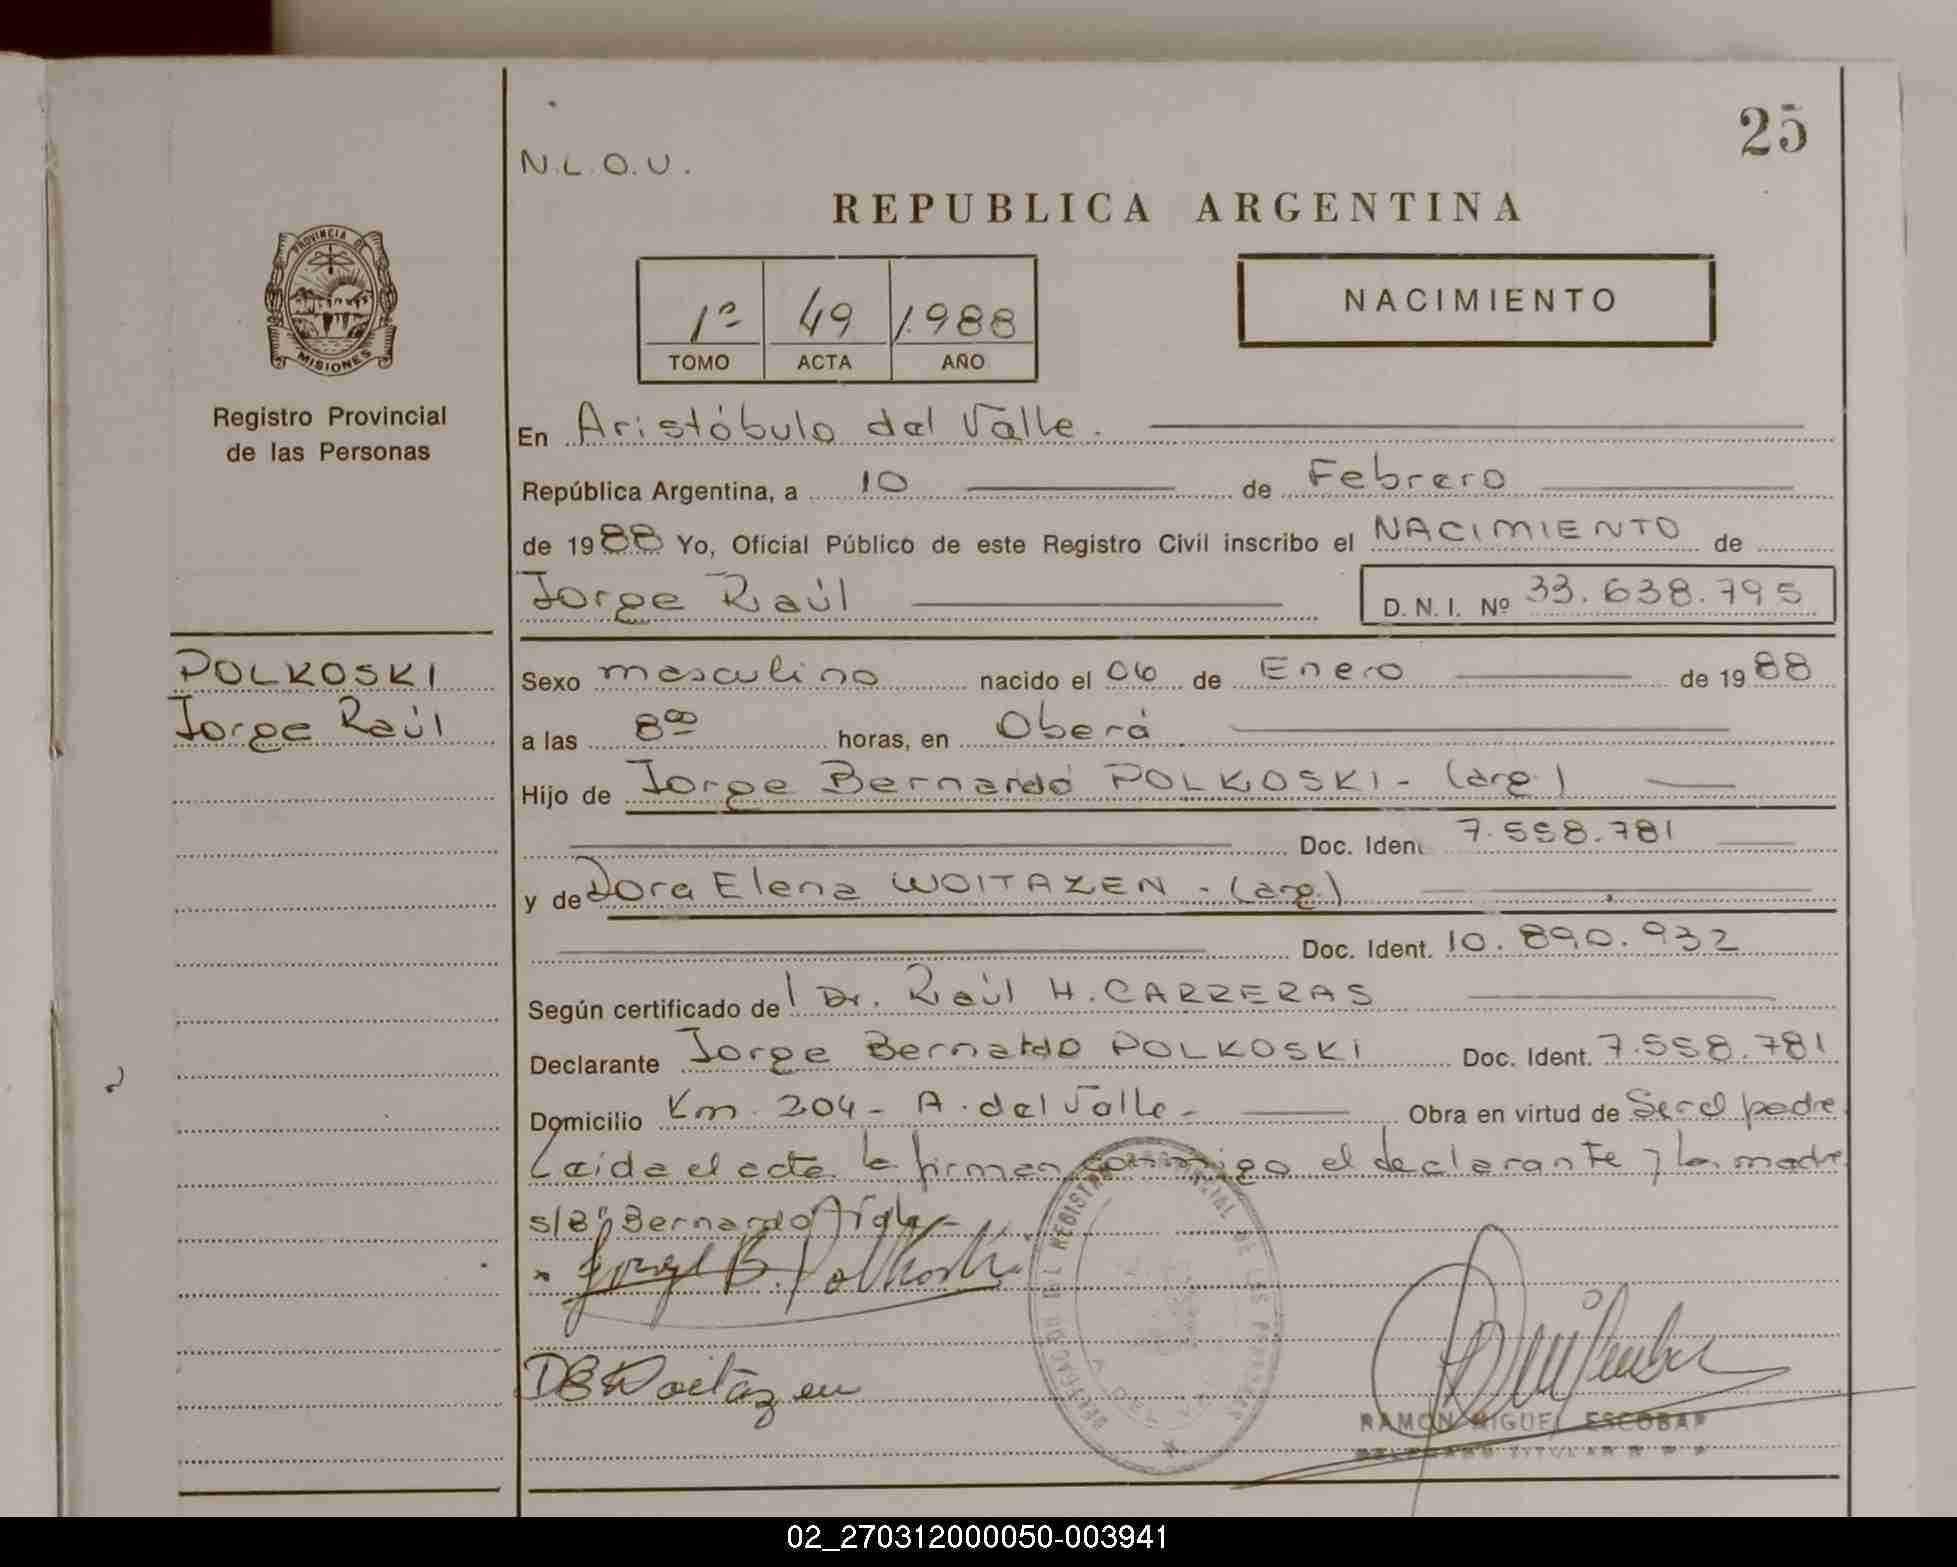 25
N.L.O.U.
REPUBLICA ARGENTINA
PROVINCIA DE
MISIONES
Registro Provincial
de las Personas
1º 49 1.988
TOMO ACTA AÑO
NACIMIENTO
En Aristóbulo del Valle.
República Argentina, a 10 de Febrero
de 1988 Yo, Oficial Público de este Registro Civil inscribo el NACIMIENTO de
Jorge Raúl D. N. I. Nº 33.638.795
POLKOSKI
Jorge Raúl
Sexo masculino nacido el 06 de Enero de 1988
a las 8⁰⁰ horas, en Oberá
Hijo de Jorge Bernardo POLKOSKI - (arg)
Doc. Ident 7.558.781
y de Dora Elena WOITAZEN - (arg.)
Doc. Ident. 10.890.932
Según certificado del Dr. Raúl H. CARRERAS
Declarante Jorge Bernardo POLKOSKI Doc. Ident. 7.558.781
Domicilio Km. 204 - A. del Valle - Obra en virtud de Ser el padre
Leida el acta la firman conmigo el declarante y la madre
s/B: Bernardo
Jorge B. Polkoski
DEWoitazen
RAMON MIGUEL ESCOBAR
DELEGADO TITULAR R. P. P.
02_270312000050-003941